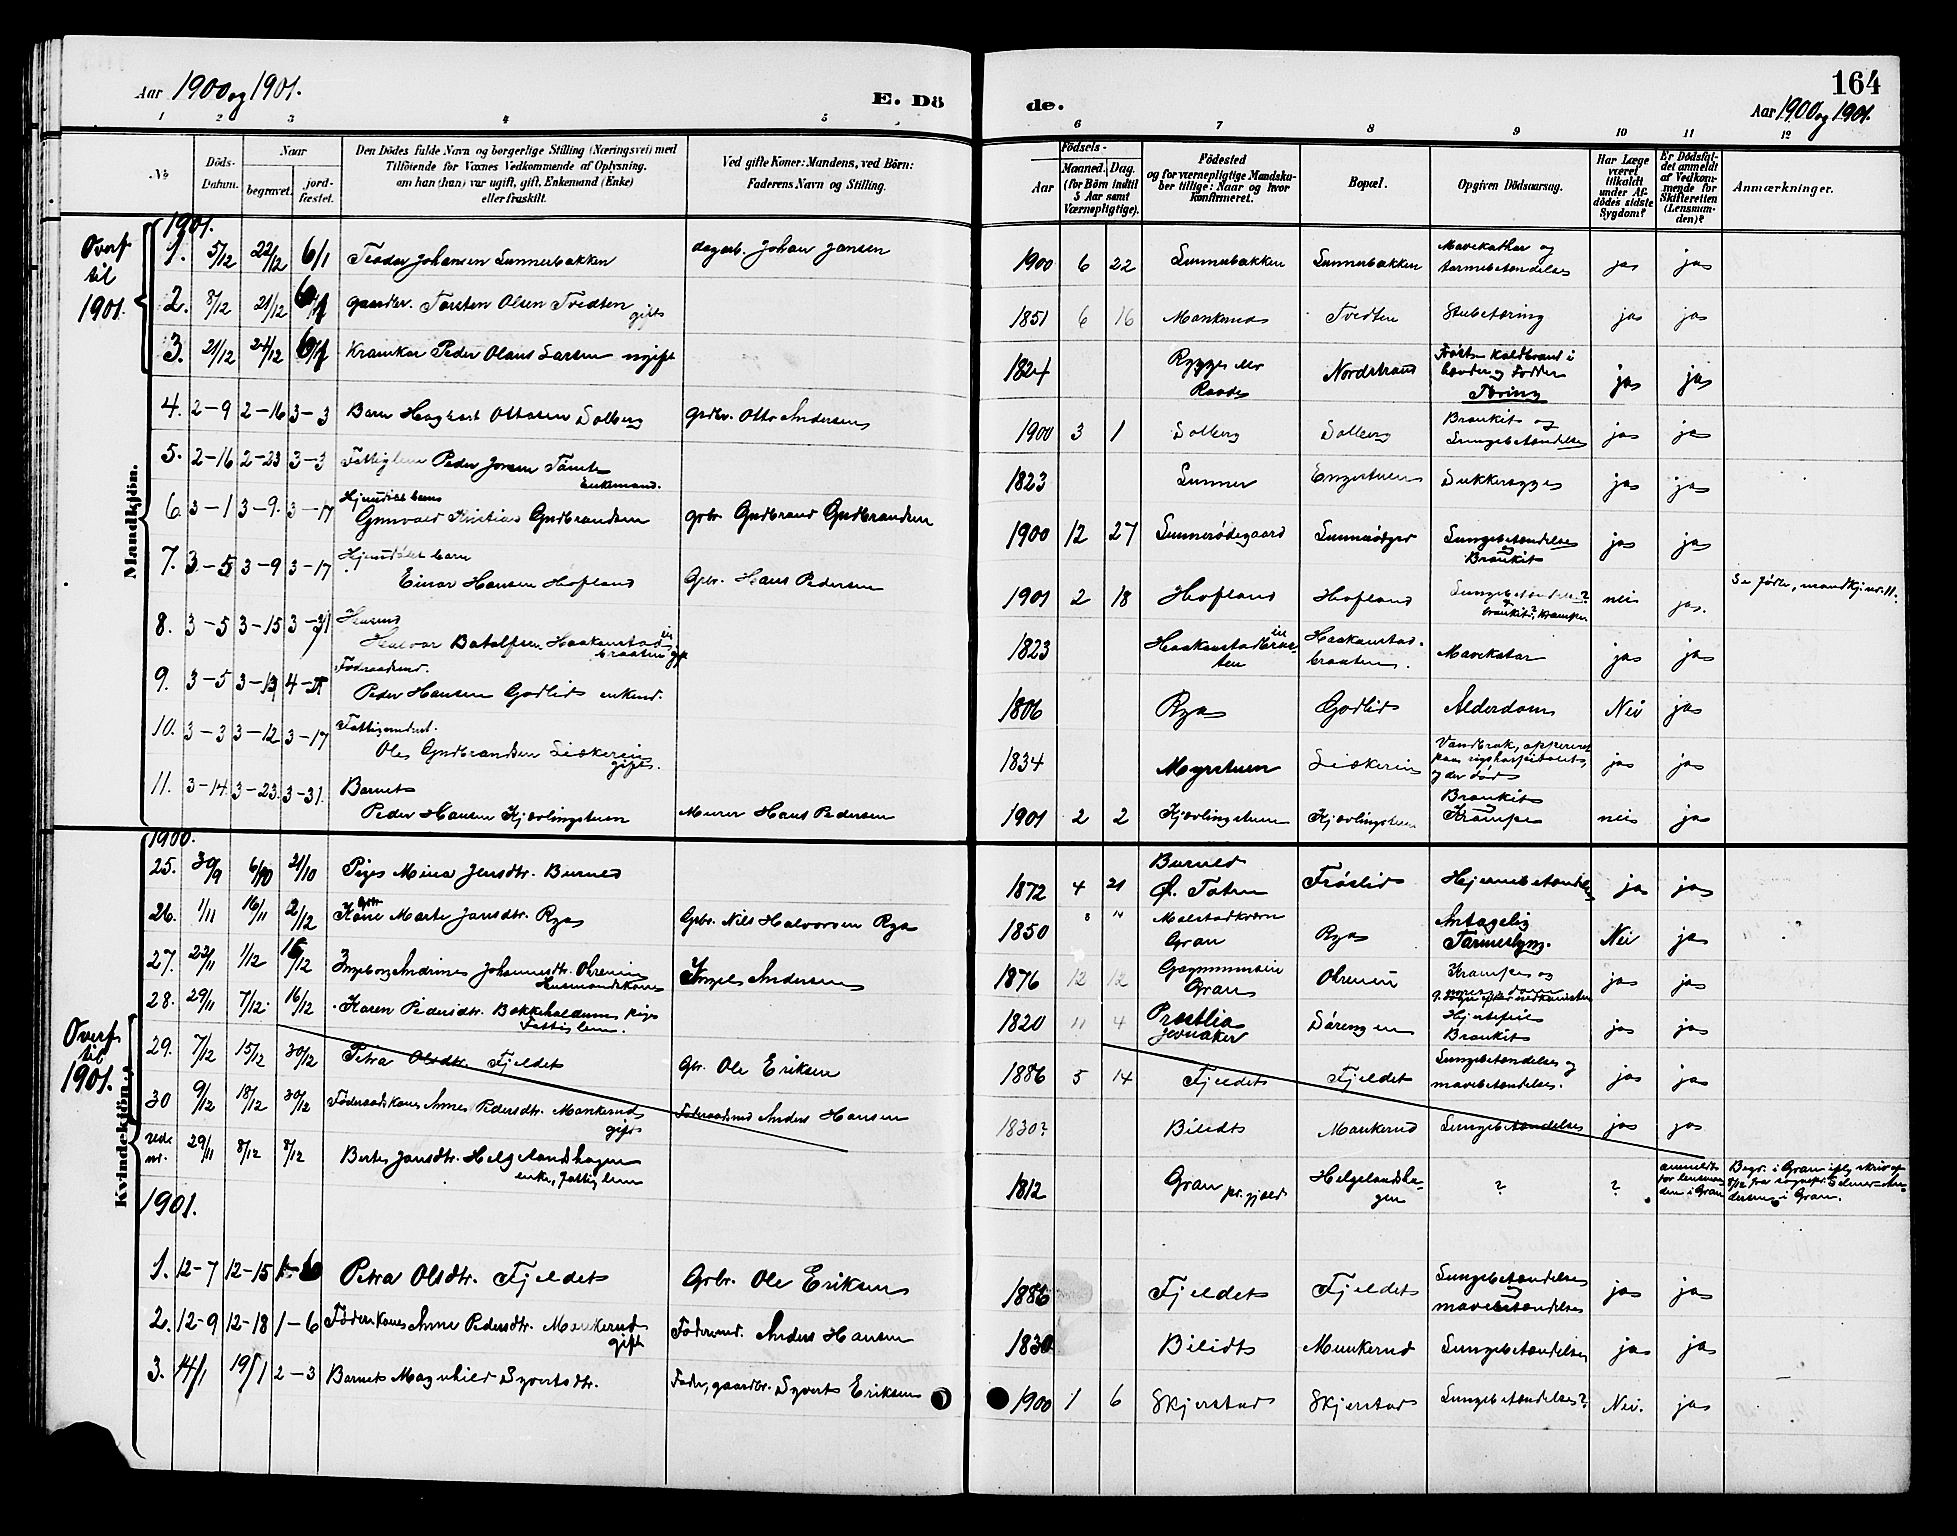 Aar 1900 og 1901.
E. Dö
de.
164
Aar 1900 og 1901.
1 2 3 4 5 6 7 8 9 10 11 12
No
Döds-Datum.
Naar
begravet.
jord-fæstet.
Den Dödes fulde Navn og borgerlige Stilling (Næringsvei) med
Tilföiende for Voxnes Vedkommende af Oplysning,
om han (hun) var ugift, gift, Enkemand (Enke)
eller fraskilt.
Ved gifte Koner: Mandens, ved Börn:
Faderens Navn og Stilling.
Födsels-
Aar
Maaned. Dag.
(for Börn indtil
5 Aar samt
Værnepligtige).
Födested
og for værnepligtige Mandska-
ber tillige: Naar og hvor
konfirmeret.
Bopæl.
Opgiven Dödsaarsag.
Har Læge
været
tilkaldt
under Af-
dödes sidste
Sygdom?
Er Dödsfal-
det anmeldt
af Vedkom-
mende for
Skifteretten
(Lensman-
den)?
Anmærkninger.
Mandkjön.
Overf til 1901.
1901.
1. 5/12 22/12 6/1 Johansen Sunnerbakken dagarb. Johan Jansen 1900 6 22 Sunnerbakken Sunnerbakken Mavekathar og tarmebetændelse ja ja
2. 8/12 21/12 gaardbr. Torsten Olsen Tvedten gift 1851 6 16 Tvedten ja ja
3. 21/12 24/12 Peder Olaus Larsen ugift 1824 Rygge eller Raade Nordstrand Koldbrand i hænder og födder Tæring ja ja
4. 2-9 2-16 3-3 Barn Haghart Ottosen Solberg grdbr. Otto Andersen 1900 3 1 Solberg Solberg Bronkit og Lungebetændelse ja ja
5. 2-16 2-23 3-3 Fattiglem Peder Jonsen Tömte Enkemand. 1823 Sunner Engerstuen Sukkersyge ja ja
6. 3-1 3-9. 3-17 Hjemdöbt barn Gunvald Kristian Gudbrandsen grbr. Gudbrand Gudbrandsen 1900 12 27 Sunnerödegaard Lungebetændelse Bronkit ja ja
7. 3-5 3-9 3-17 Hjemdöbt barn Einar Hansen Hofland Grbr. Hans Pedersen 1901 2 18 Hofland Hofland Lungebetændelse? bronkit? Kramper nei ja. Se födte, mandkj. nr. 11.
8. 3-5 3-15 3-31 Husmd Halvor Haakenstadbraaten gift 1823 Haakenstadbraaten Haakenstadbraaten. Mavekatar ja ja
9. 3-5 3-13 Föderaadsmd. Peder Hansen Godlid enkemd. 1806 Rya Godlid Alderdom Nei ja
10. 3-3 3-12 3-17 Ole Gudbrandsen gift. 1834 Myrstuen Vandbrok, opereret paa rigshospitalet, og der död ja ja
11. 3-14. 3-23. 3-31. Barnet Peder Hansen Kjövlingstuen Murer Hans Pedersen 1901 2 2 Kjövlingstuen Kjövlingstuen Bronkit og Krampe nei ja
Kvindekjön.
1900.
25. 30/9 6/10 21/10 Pige Mina Jensdtr. Burned 1872 4 21 Burned Ø. Toten Fröslid Hjernebetændelse ja ja
26. 1/11 16/11 2/12 Kone Marte Jansdtr. Rya Grbr. Nils Halvorsen Rya 1850 Gran Rya Antagelig Tarmeslyng. Nei ja
27. 22/11 1/12 16/12 Ingeborg Andrine Johannesdtr. Ohrenin Husmandskone Andersen 1876 12 12 Gran Ohrenin Krampe og ja ja
28. 29/11 7/12. 16/12 Karen Pedersdtr. Bakkehaldum pige Fattiglem. 1820 11 4 Præstlia Jevnaker Sörengen Hjertefeil Bronkit ja ja
Overf. til 1901.
29. 7/12 15/12 30/12 Petra Olsdtr. Fjeldet Gbr. Ole Eriksen 1886 5 14 Fjeldet Fjeldet Lungebetændelse og mavebetændelse. ja ja
30 9/12 18/12 30/12 Föderaadskone Anne Pedersdtr. Monkerud gift Föderaadsmd Anders Hansen 1830? Bilidt Monkerud Lungebetændelse ja ja
nr. 29/11 8/12 8/12 Berte Jansdtr. Helgelandshagen enke, fattiglem 1812 Gran pr.gjæld Helgelandshagen ? ? anmeldt for lensmanden i Gran Begr. i Gran iflg. skriv af 8/12 fra sognepr. i Gran.
1901.
1. 12-7 12-15 1-6 Petra Olsdtr. Fjeldet Grbr. Ole Eriksen 1886 Fjeldet Fjeldet Lungebetændelse og mavebetændelse ja ja
2. 12-9 12-18 1-6 Föder.Kone Anne Pedersdtr. Monkerud gift Födermd. Anders Hansen 1830 Bilidt Munkerud Lungebetændelse ja ja
3. 14/1 19/1 2-3 Barnet Magnhild Syvertsdtr. Fader, gaardbr. Syvert Eriksen 1900 1 6 Skjerstad Skjerstad Lungebetændelse? Nei. ja